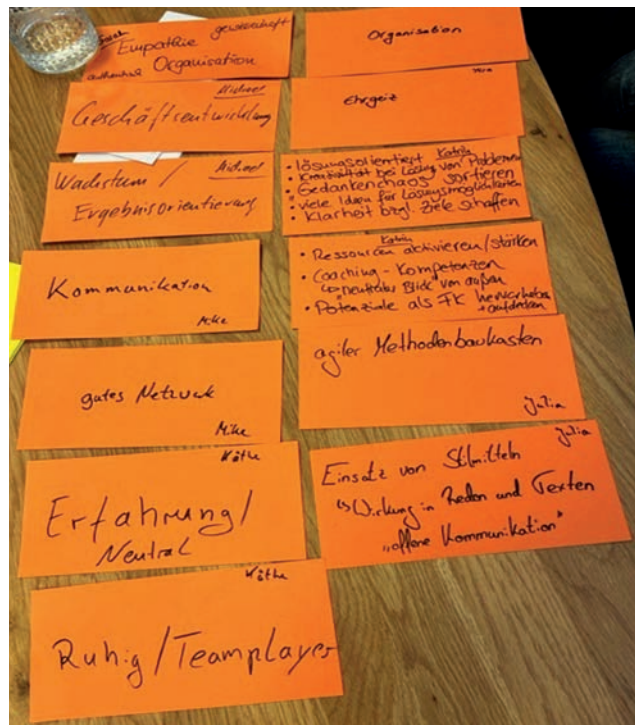 Sarah
gewissenhaft
Empathie
authentisch Organisation
Michael
Geschäftsentwicklung
Michael
Wachstum /
Ergebnisorientierung
Kommunikation
Mike
gutes Netzwerk
Mike
Käthe
Erfahrung/
Neutral
Käthe
Ruhig/Teamplayer
Organisation
Mia
Ehrgeiz
• lösungsorientiert Katrin
• Kreativität bei Lösung von Problemen
• "Gedankenchaos" sortieren
• viele Ideen für Lösungsmöglichkeiten
• Klarheit bzgl. Ziele schaffen
Katrin
• Ressourcen aktivieren/stärken
• Coaching-Kompetenzen
↳ "neutraler Blick" von außen
• Potenziale als FK hervorheben
+ aufdecken
agiler Methodenbaukasten
Julia
Julia
Einsatz von Stilmitteln
↳ Wirkung in Reden und Texten
„offene Kommunikation"